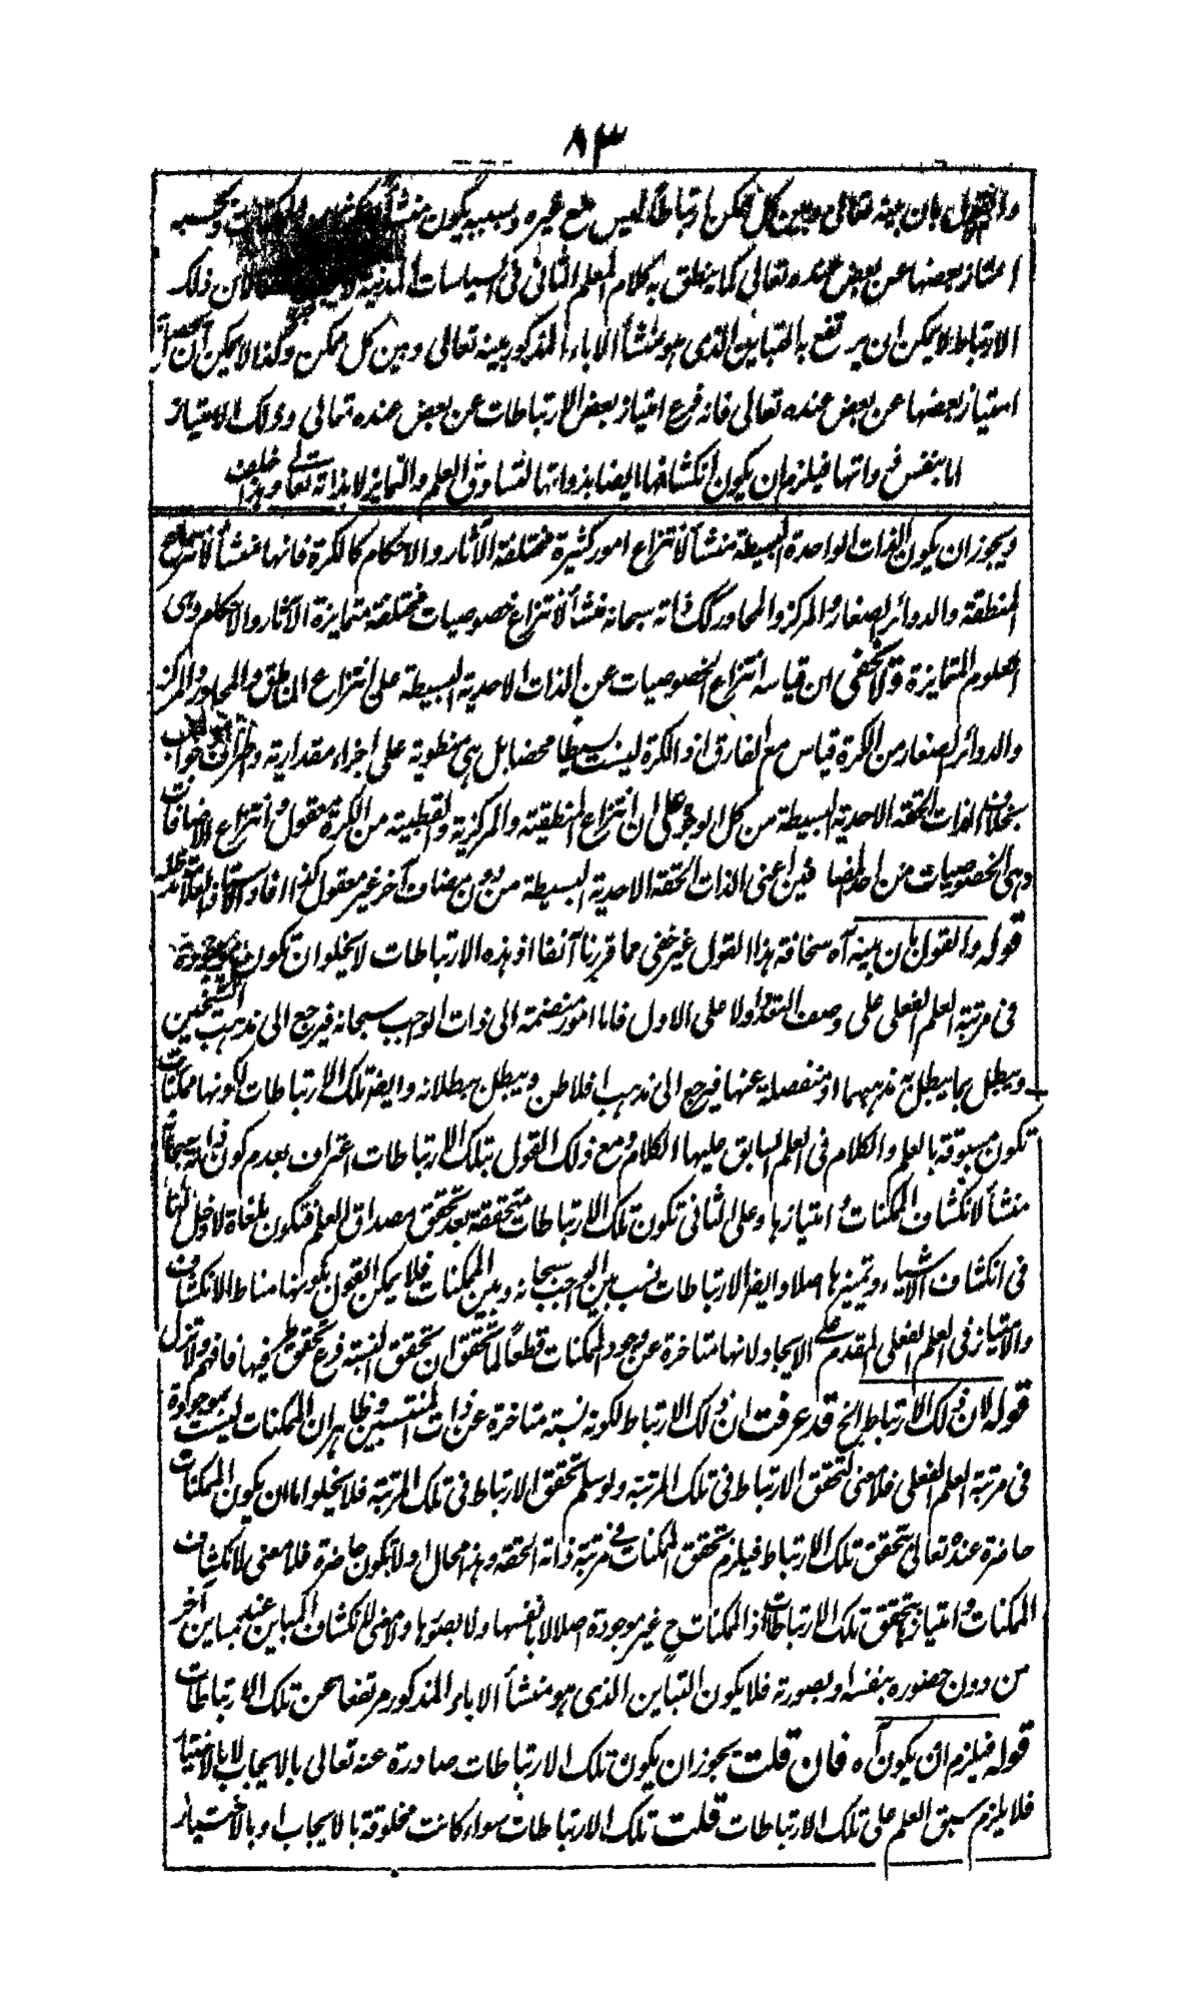 ٨٣
والقول بان بينه تعالى وبين كل ممكن ارتباطا ليس مع غيره وبسببه يكون منشأ
امتياز بعضها عن بعض عنده تعالى كما ينطق به كلام المعلم الثانى فى السياسات المدنية لان ذلك
الارتباط لا يمكن ان يرتفع به التباين الذى هو منشأ الاباء المذكور بينه تعالى وبين كل ممكن وكذا لا يمكن ان
امتياز بعضها عن بعض عنده تعالى فانه فرع امتياز بعض الارتباطات عن بعض عنده تعالى وذلك الامتياز
اما بنفس ذواتها فيلزم ان يكون انكشافها ايضا بذواتها لتساوق العلم والتمايز لا بذاته تعالى وهذا خلف
ويجوز ان يكون الذات الواحدة البسيطة منشأ لانتزاع امور كثيرة مختلفة الآثار والاحكام كالكرة فانها منشأ لانتزاع
المنطقة والدوائر الصغار والمركز والمحاور كك ذاته سبحانه منشأ لانتزاع خصوصيات مختلفة متمايزة الآثار والاحكام وهى
العلوم المتمايزة ولا يخفى ان قياسه انتزاع الخصوصيات عن الذات الاحدية البسيطة على انتزاع المناطق والمحاور والمركز
والدوائر الصغار من الكرة قياس مع الفارق اذ الكرة ليست بسيطا محضا بل هى منطوية على اجزاء مقدارية واطراف
بخلاف الذات الحقة الاحدية البسيطة من كل الوجوه على ان انتزاع المنطقية والمركزية والقطبية من الكرة معقول وانتزاع الاضافات
وهى الخصوصيات من احد المضافين اعنى الذات الحقة الاحدية البسيطة من دون مضاف آخر غير معقول كذا افاد
قوله والقول بان بينه آه سخافة هذا القول غير خفى مما قررنا آنفا اذ هذه الارتباطات لا يخلو ان تكون موجودة
فى مرتبة العلم الفعلى على وصف التعدد اولا على الاول فاما امور منضمة الى ذات الواجب سبحانه فيرجع الى مذهب الشيخين
ويبطل بما يبطل به مذهبهما او منفصلة عنها فيرجع الى مذهب افلاطن ويبطل ببطلانه وايضا تلك الارتباطات لكونها ممكنات
تكون مسبوقة بالعلم والكلام فى العلم السابق عليها الكلام ومع ذلك القول بتلك الارتباطات اعتراف بعدم كون ذاته سبحانه
منشأ لانكشاف الممكنات وامتيازها وعلى الثانى تكون تلك الارتباطات متحققة بعد تحقق مصداق العلم فتكون ملغاة لا دخل لها
فى انكشاف الاشياء وتميزها اصلا وايضا الارتباطات نسب بين الواجب سبحانه وبين الممكنات فلا يمكن القول بكونها مناط الانكشاف
والامتياز فى العلم الفعلى المقدم على الايجاد لانها متاخرة عن وجود الممكنات قطعا لما تحقق ان تحقق النسبة فرع تحقق طرفيها فافهم ولا تزل
قوله لان ذلك الارتباط الخ قد عرفت ان ذلك الارتباط لكونه نسبة متاخرة عن ذات المنتسبين وظاهر ان الممكنات ليست بموجودة
فى مرتبة العلم الفعلى فلا معنى لتحقق الارتباط فى تلك المرتبة ولو سلم تحقق الارتباط فى تلك المرتبة فلا يخلو اما ان يكون الممكنات
حاضرة عنده تعالى بتحقق تلك الارتباط فيلزم تحقق الممكنات فى مرتبة ذاته الحقة وهذا محال او لا تكون حاضرة فلا معنى لانكشاف
الممكنات وامتيازها بتحقق تلك الارتباطات اذ الممكنات ح غير موجودة اصلا لا بانفسها ولا بصورها ولا معنى لانكشاف المباين عند مباين آخر
من دون حضوره بنفسه او بصورته فلا يكون التباين الذى هو منشأ الاباء المذكور مرتفعا عن تلك الارتباطات
قوله فيلزم ان يكون آه فان قلت يجوز ان يكون تلك الارتباطات صادرة عنه تعالى بالايجاب لا بالاختيار
فلا يلزم سبق العلم على تلك الارتباطات قلت تلك الارتباطات سواء كانت مخلوقة بالايجاب او بالاختيار